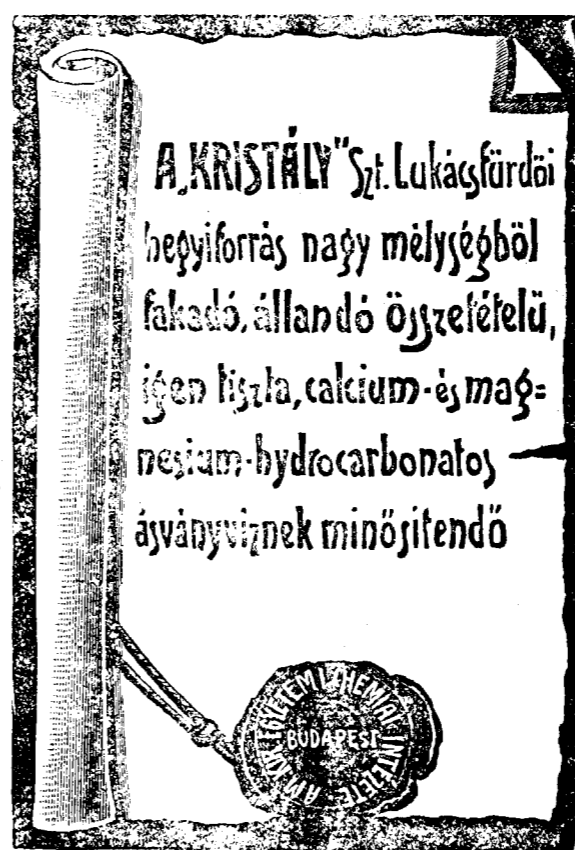 A „KRISTÁLY" Szt. Lukácsfürdői
hegyiforrás nagy mélységből
fakadó, állandó összetételű,
igen tiszta, calcium-és mag=
nesium-hydrocarbonatos
ásványviznek minősitendő
A M. KIR. EGYETEM I. CHEMIAI INTÉZETE
BUDAPEST